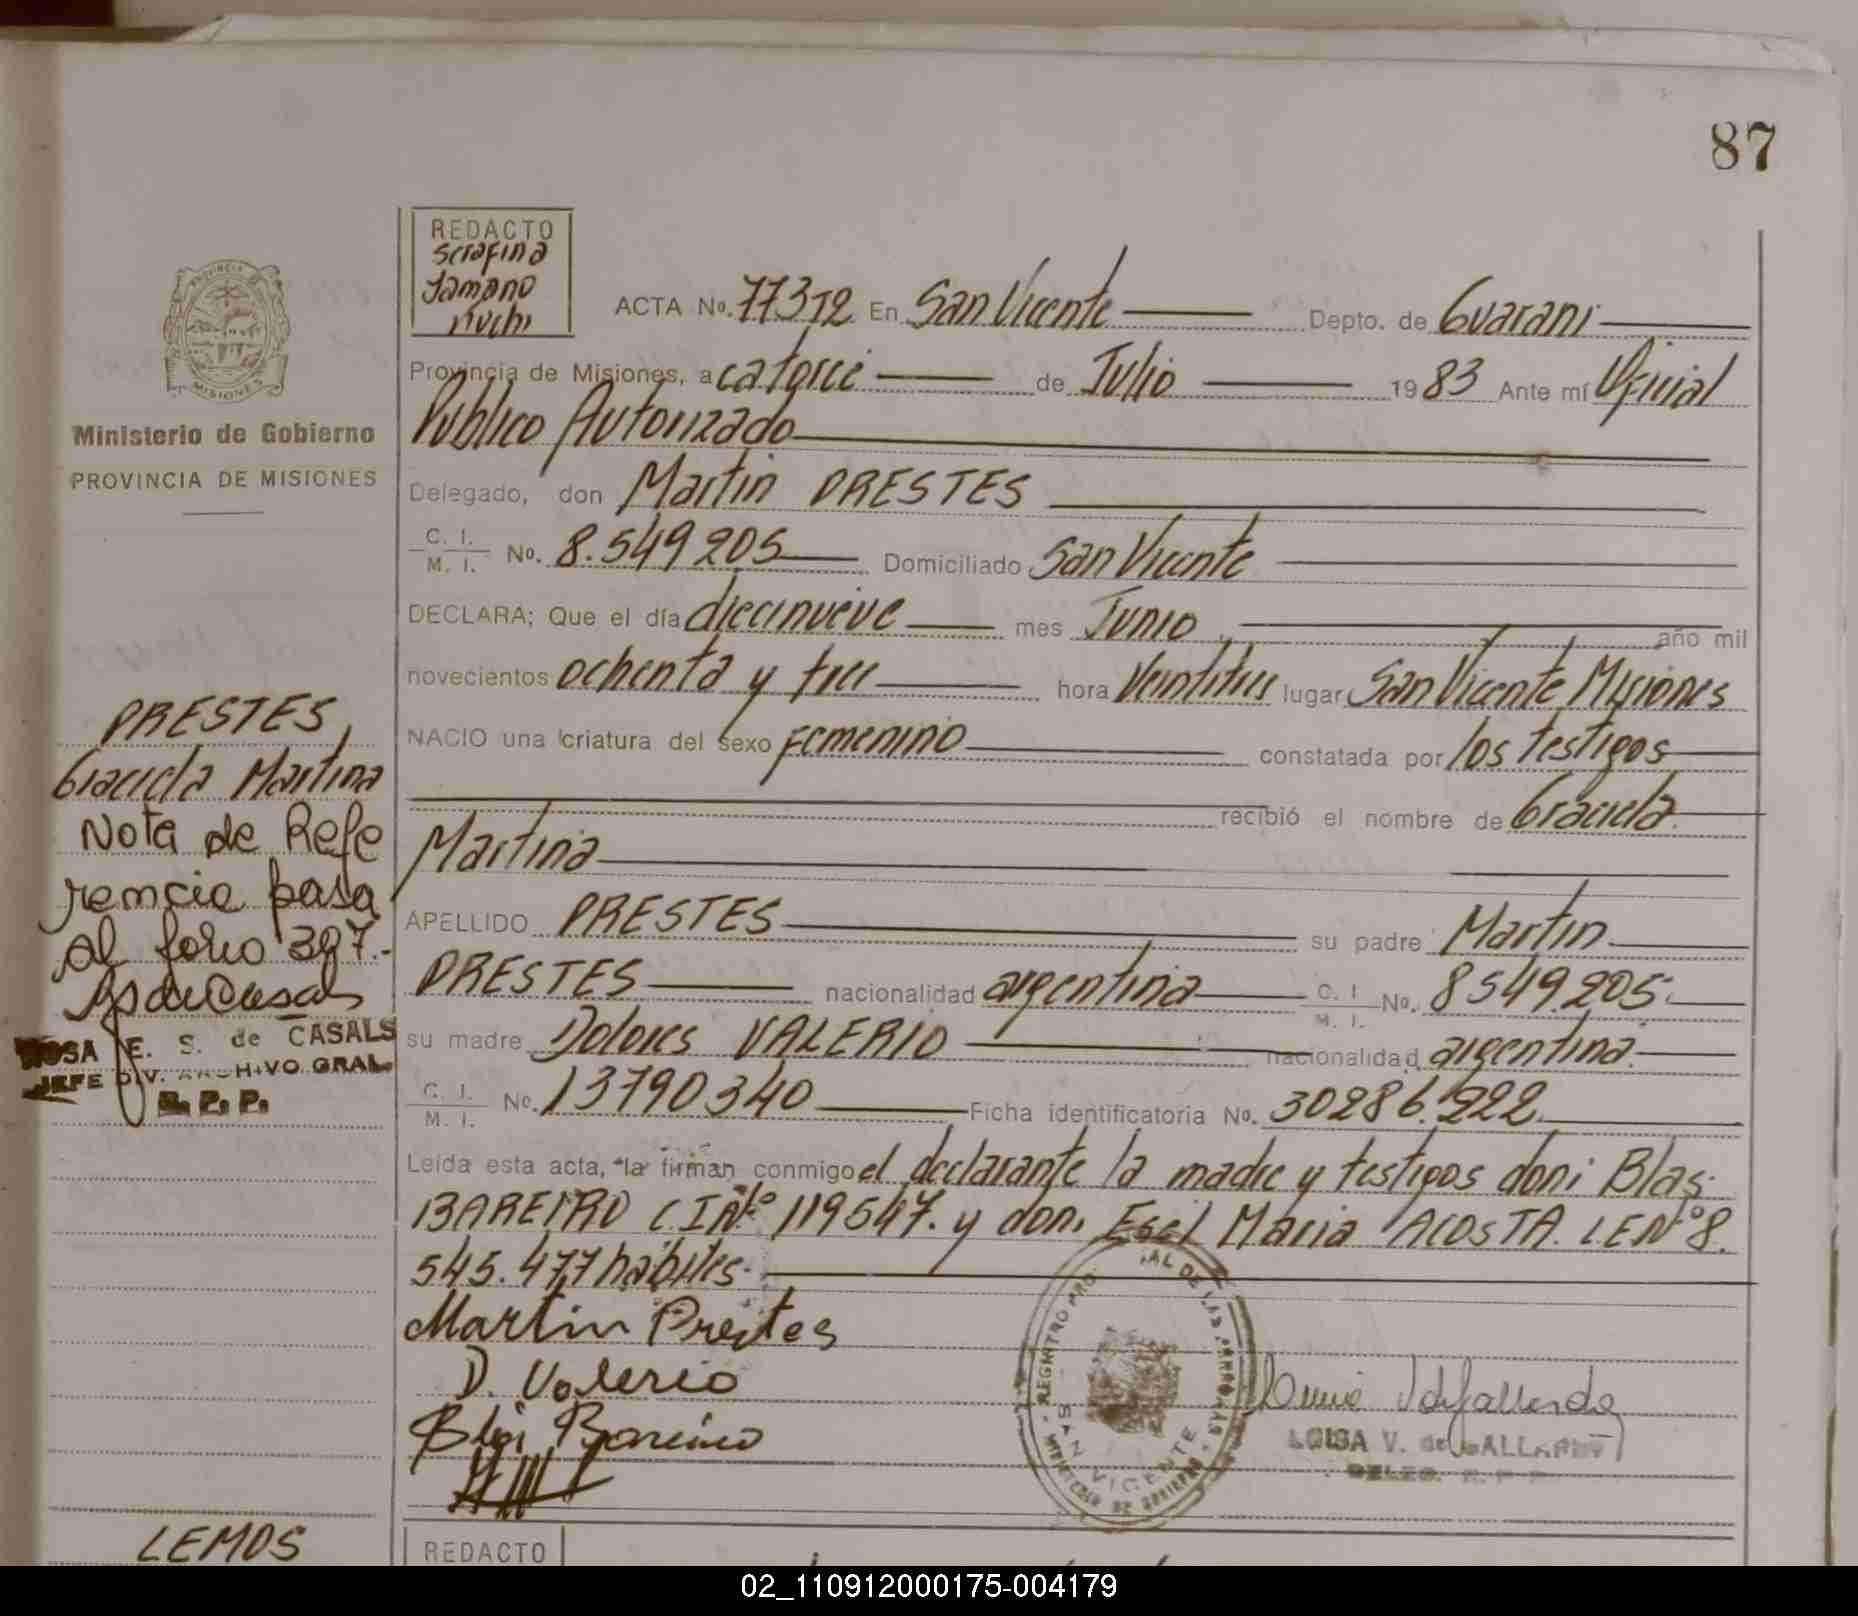 87
REDACTO
Serafina
ACTA No. 77312 En San Vicente Depto. de Guarani
Provincia de Misiones, a catorce de Julio 1983 Ante mí Oficial
Publico Autorizado
Ministerio de Gobierno
PROVINCIA DE MISIONES
Delegado, don Martin PRESTES
C. I.
M. I. No. 8.549205 Domiciliado San Vicente
DECLARA; Que el día diecinueve mes Junio año mil
novecientos ochenta y tres hora Veintitres lugar San Vicente Misiones
NACIO una criatura del sexo Femenino constatada por los testigos
recibió el nombre de Graciela
Martina
APELLIDO PRESTES su padre Martin
PRESTES nacionalidad argentina C. I. M. I. No. 8549.205
su madre Dolores VALERIO nacionalidad argentina
C. I.
M. I. No. 13790340 Ficha identificatoria No. 30286.222
Leída esta acta, la firman conmigo el declarante la madre y testigos don: Blas
BAREIRO C.I Nº 119547. y don, Maria ACOSTA. LE Nº 8.
545.477 habiles.
Martin Prestes
D. Valerio
Blas Bareiro
PRESTES,
Graciela Martina
Nota de Refe
rencia pasa
al folio 397.-
ROSA E. S. de CASALS
JEFE DIV. ARCHIVO GRAL.
R. P. P.
SAN VICENTE
LUISA V. de GALLARDO
DELEG. R. P. P.
LEMOS
REDACTO
02_110912000175-004179